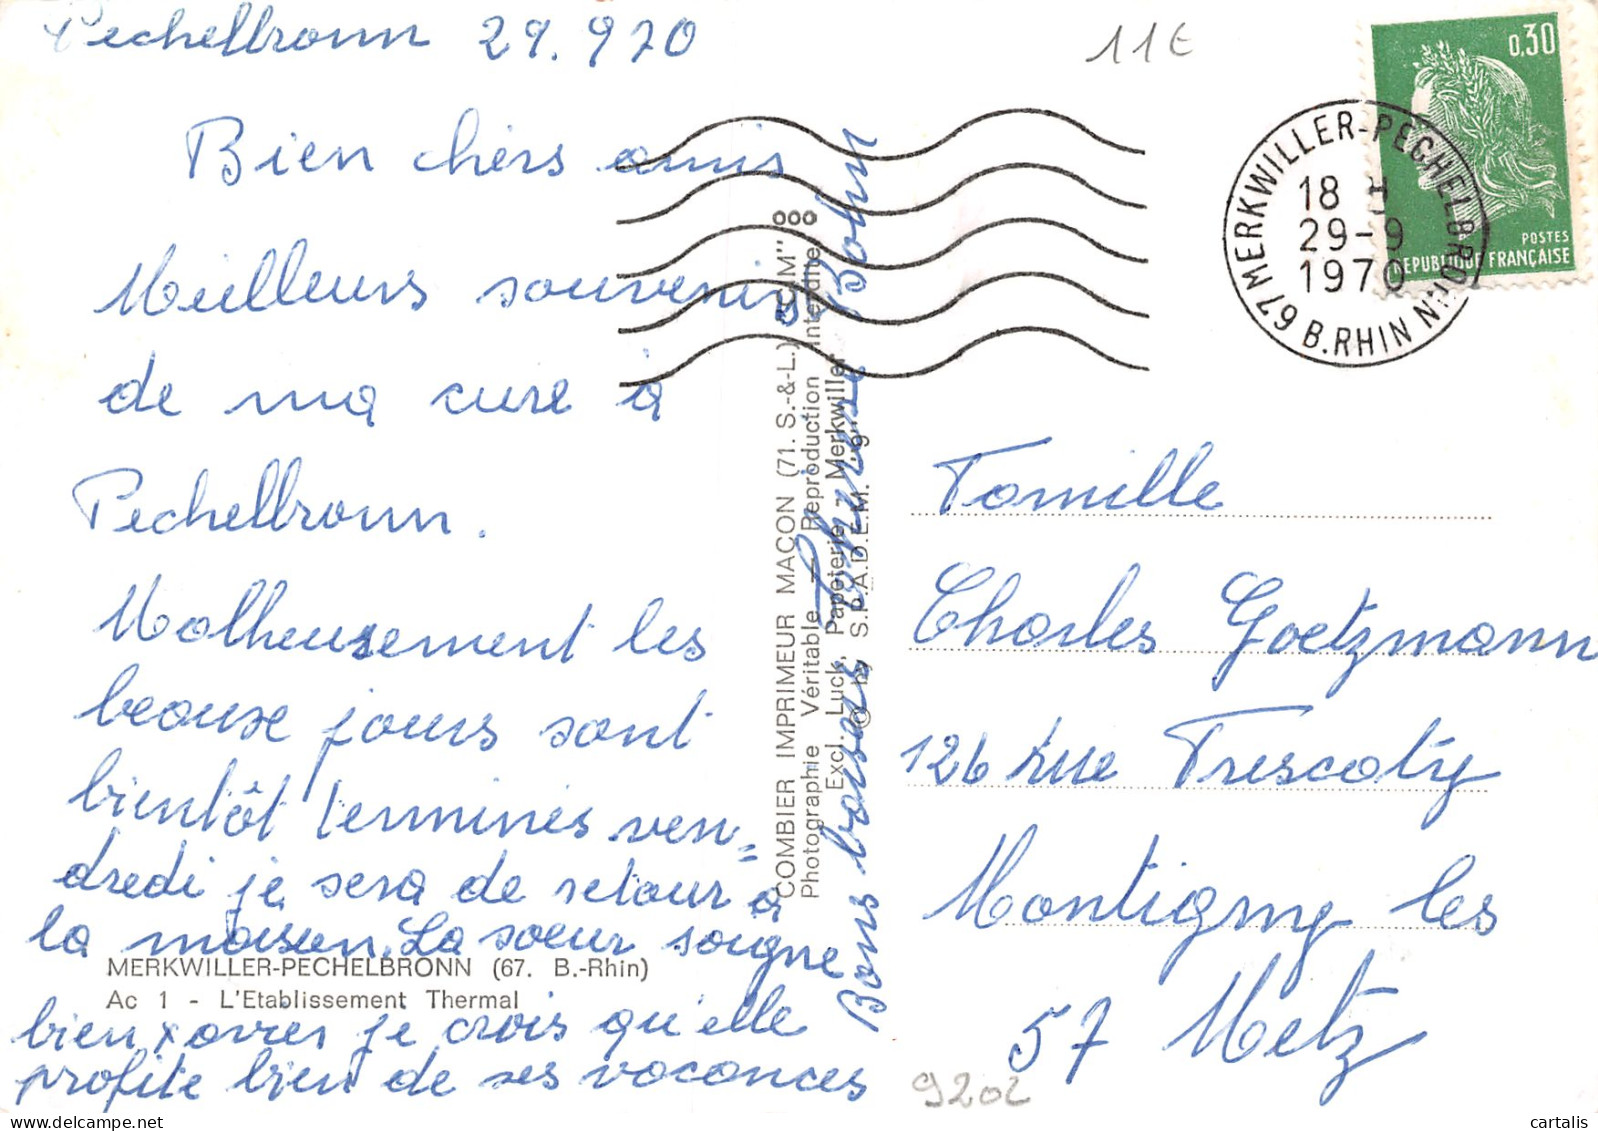 Pechelbronn 29.970
Bien chers amis
Meilleurs souvenirs
de ma cure à
Pechelbronn.
Malheusement les
beause jours sont
bientôt terminés ven=
dredi je sera de retour à
la maison. La soeur soigne
bien xavier je crois qu'elle
profite bien de ses vacances
Bons baisers Thérèse Bohn
MERKWILLER-PECHELBRONN (67. B.-Rhin)
Ac 1 - L'Etablissement Thermal
COMBIER IMPRIMEUR MACON (71. S.-&-L.) "CIM"
Photographie Véritable - Reproduction Interdite
Excl. Luck, Papeterie - Merkwiller
© by S.P.A.D.E.M.
11€
0,30
POSTES
REPUBLIQUE FRANÇAISE
67 MERKWILLER-PECHELBRONN B.RHIN
18 H
29-9
1970
Famille
Charles Goetzmann
126 rue Frescaty
Montigny les
57 Metz
9202
cartalis